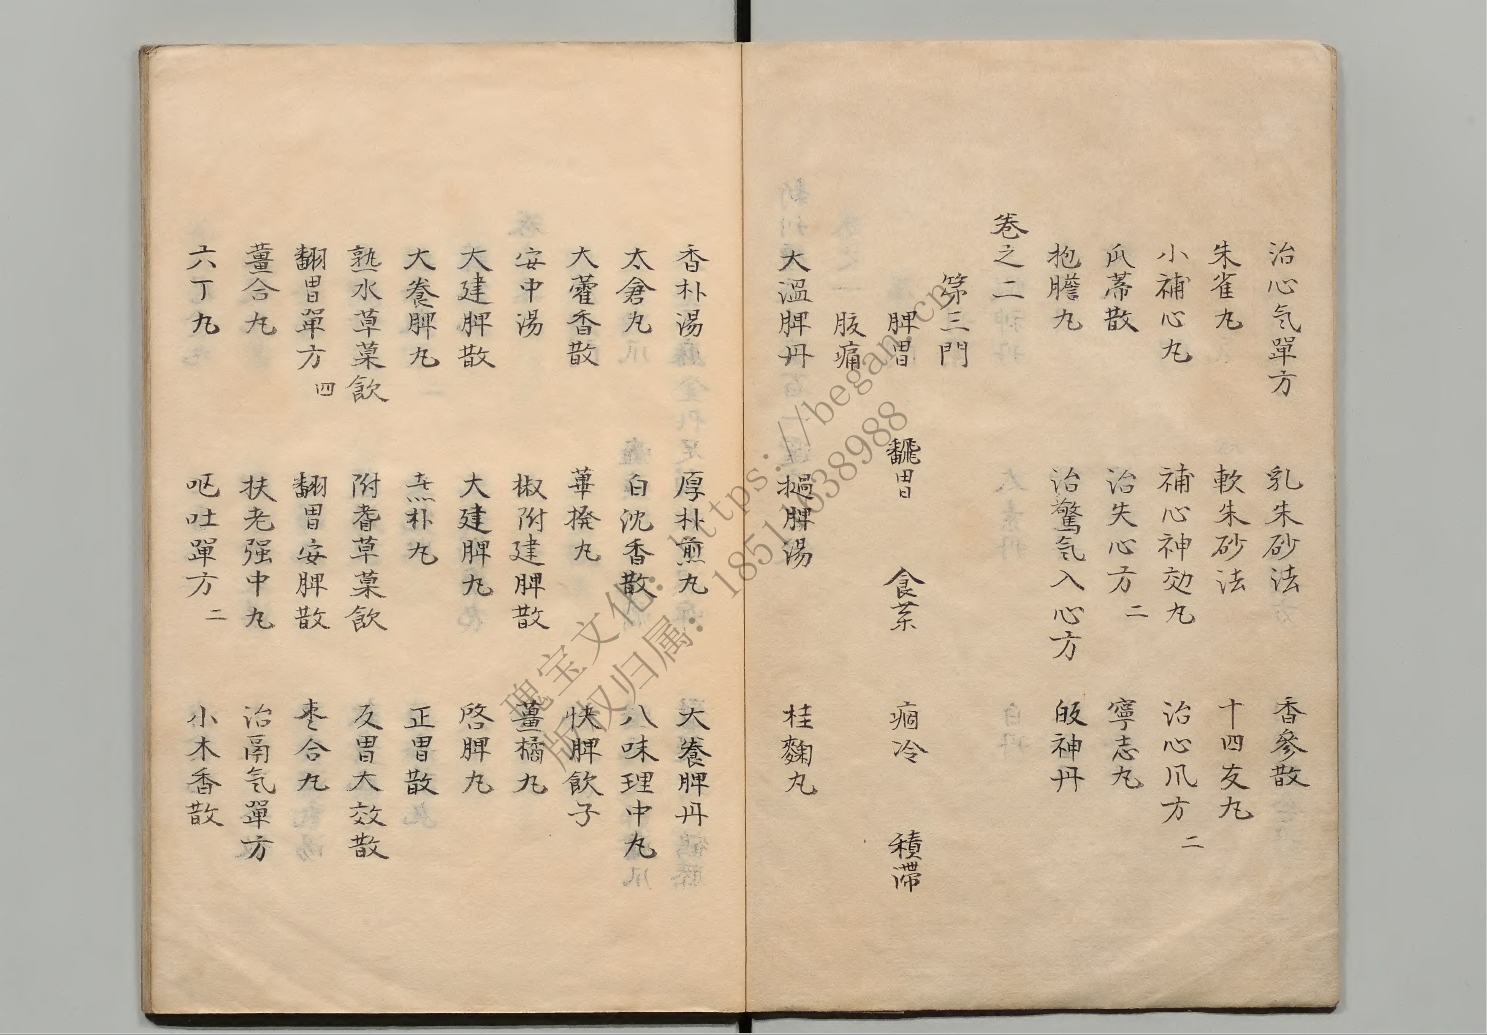 治心气單方 乳朱砂法 香參散
朱雀丸 軟朱砂法 十四友丸
小補心丸 補心神効丸 治心爪方 二
瓜蔕散 治失心方 二 寧志丸
抱膽丸 治驚气入心方 皈神丹
卷之二
第三門
脾胃 飜胃 食茱 痼冷 積滯
腹痛
大温脾丹 撾脾湯 桂麴丸
香朴湯 厚朴煎丸 大養脾丹
太倉丸 白沈香散 八味理中丸
大藿香散 蓽撥丸 快脾飲子
安中湯 椒附建脾散 薑橘丸
大建脾散 大建脾丸 啓脾丸
大養脾丸 𤋮朴丸 正胃散
熟水草菓飲 附香草菓飲 反胃大效散
翻胃單方 四 翻胃安脾散 棗合丸
薑合丸 扶老强中丸 治鬲气單方
六丁丸 呕吐單方 二 小木香散
瑰宝文化: https://began.cn
版权归属: 18511038988